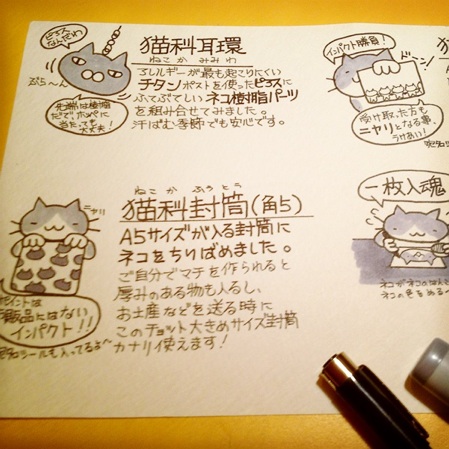 ピアス
なんだわ
ぷら〜ん
先端は樹脂
だで、ホッペに
当たっても
大丈夫!
猫科耳環
ねこかみみわ
アレルギーが最も起こりにくい
チタンポストを使ったピアスに
ふてぶてしいネコ樹脂パーツ
を組み合せてみました。
汗ばむ季節でも安心です。
インパクト勝負!
ドーン!
受け取った方も
ニヤリとなる事、
うけあい!
ニヤリ
ポイントは
インパクト!!
ねこかふうとう
猫科封筒(角5)
A5サイズが入る封筒に
ネコをちりばめました。
ご自分でマチを作られると
厚みのある物も入るし、
お土産などを送る時に
このチョット大きめサイズ封筒
カナリ使えます!
シールも入ってるよ〜
一枚入魂